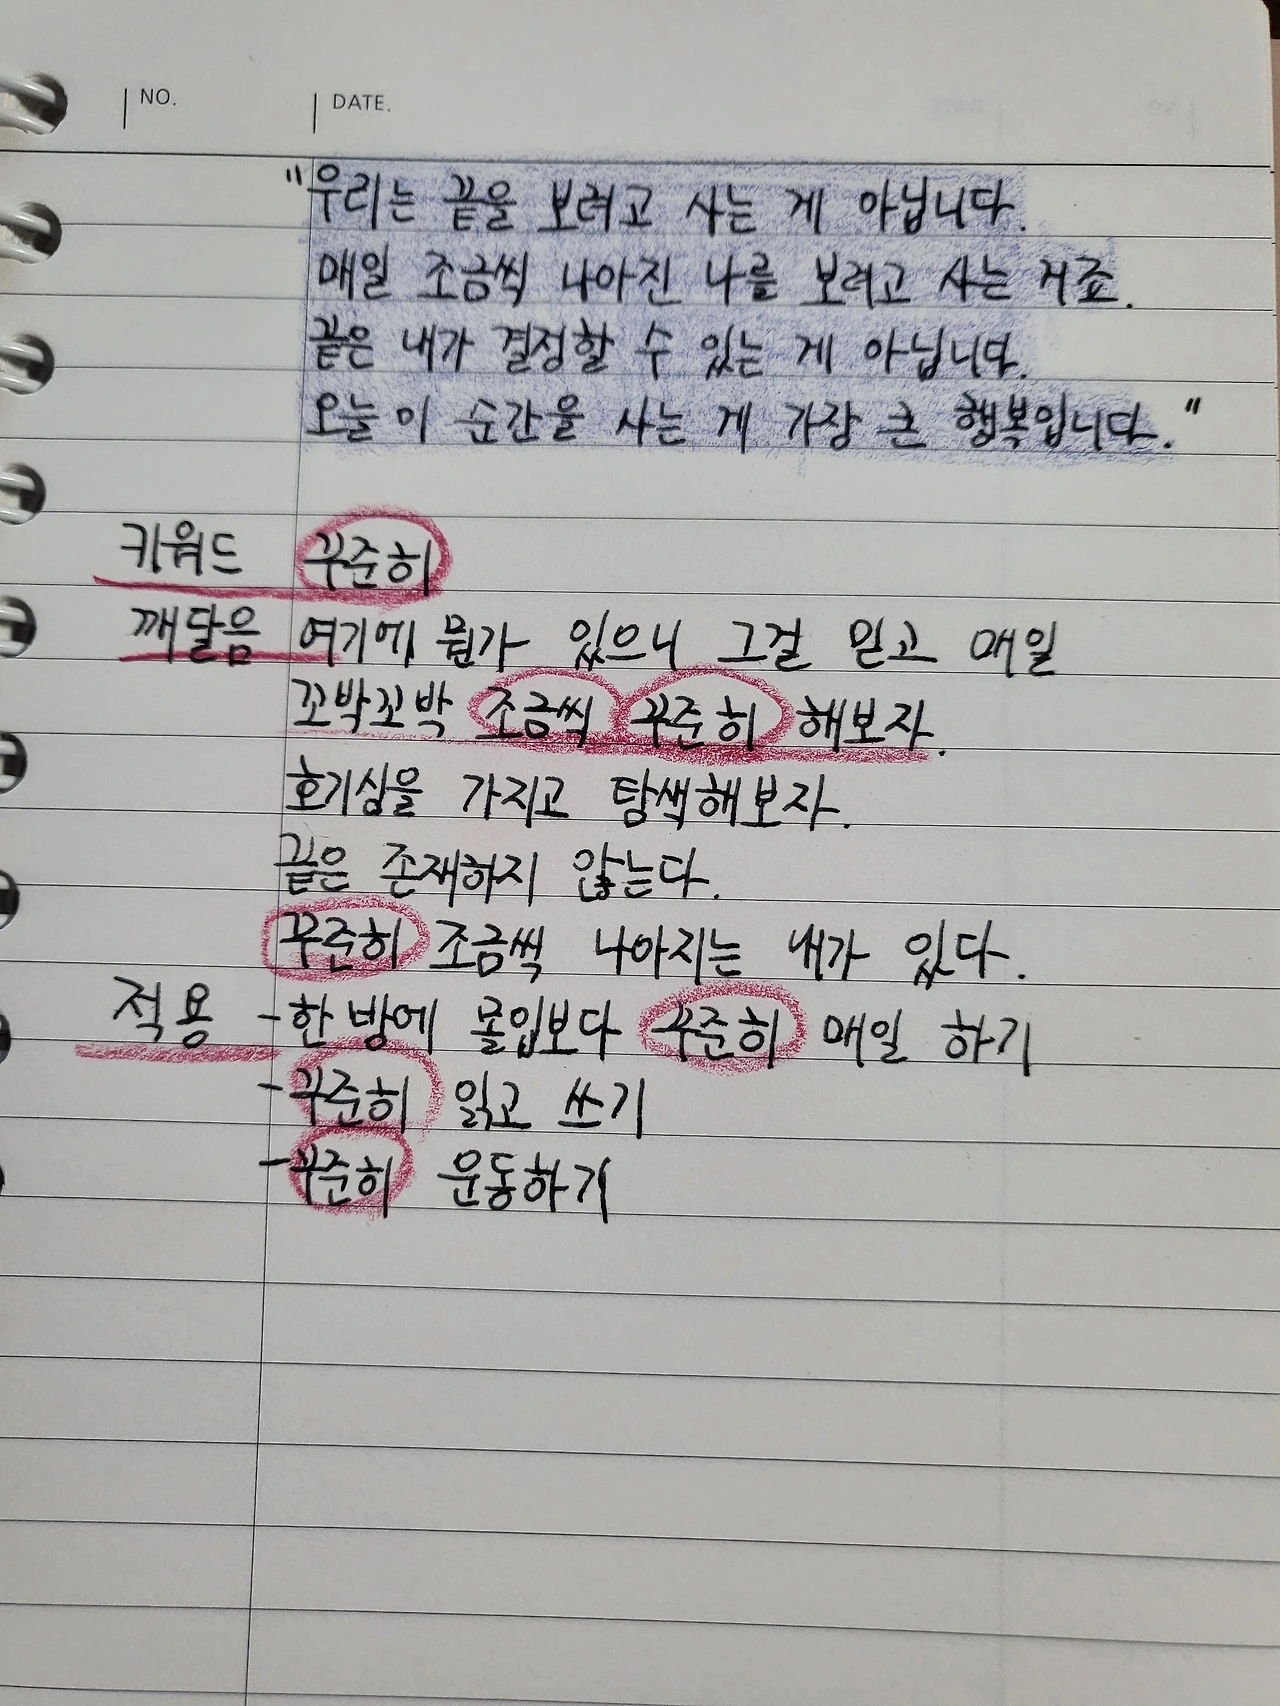 NO. DATE.
"우리는 끝을 보려고 사는 게 아닙니다.
매일 조금씩 나아진 나를 보려고 사는 거죠.
끝은 내가 결정할 수 있는 게 아닙니다.
오늘 이 순간을 사는 게 가장 큰 행복입니다."
키워드 꾸준히
깨달음 여기에 뭔가 있으니 그걸 믿고 매일
꼬박꼬박 조금씩 꾸준히 해보자.
호기심을 가지고 탐색해보자.
끝은 존재하지 않는다.
꾸준히 조금씩 나아지는 내가 있다.
적용 -한 방에 몰입보다 꾸준히 매일 하기
-꾸준히 읽고 쓰기
-꾸준히 운동하기